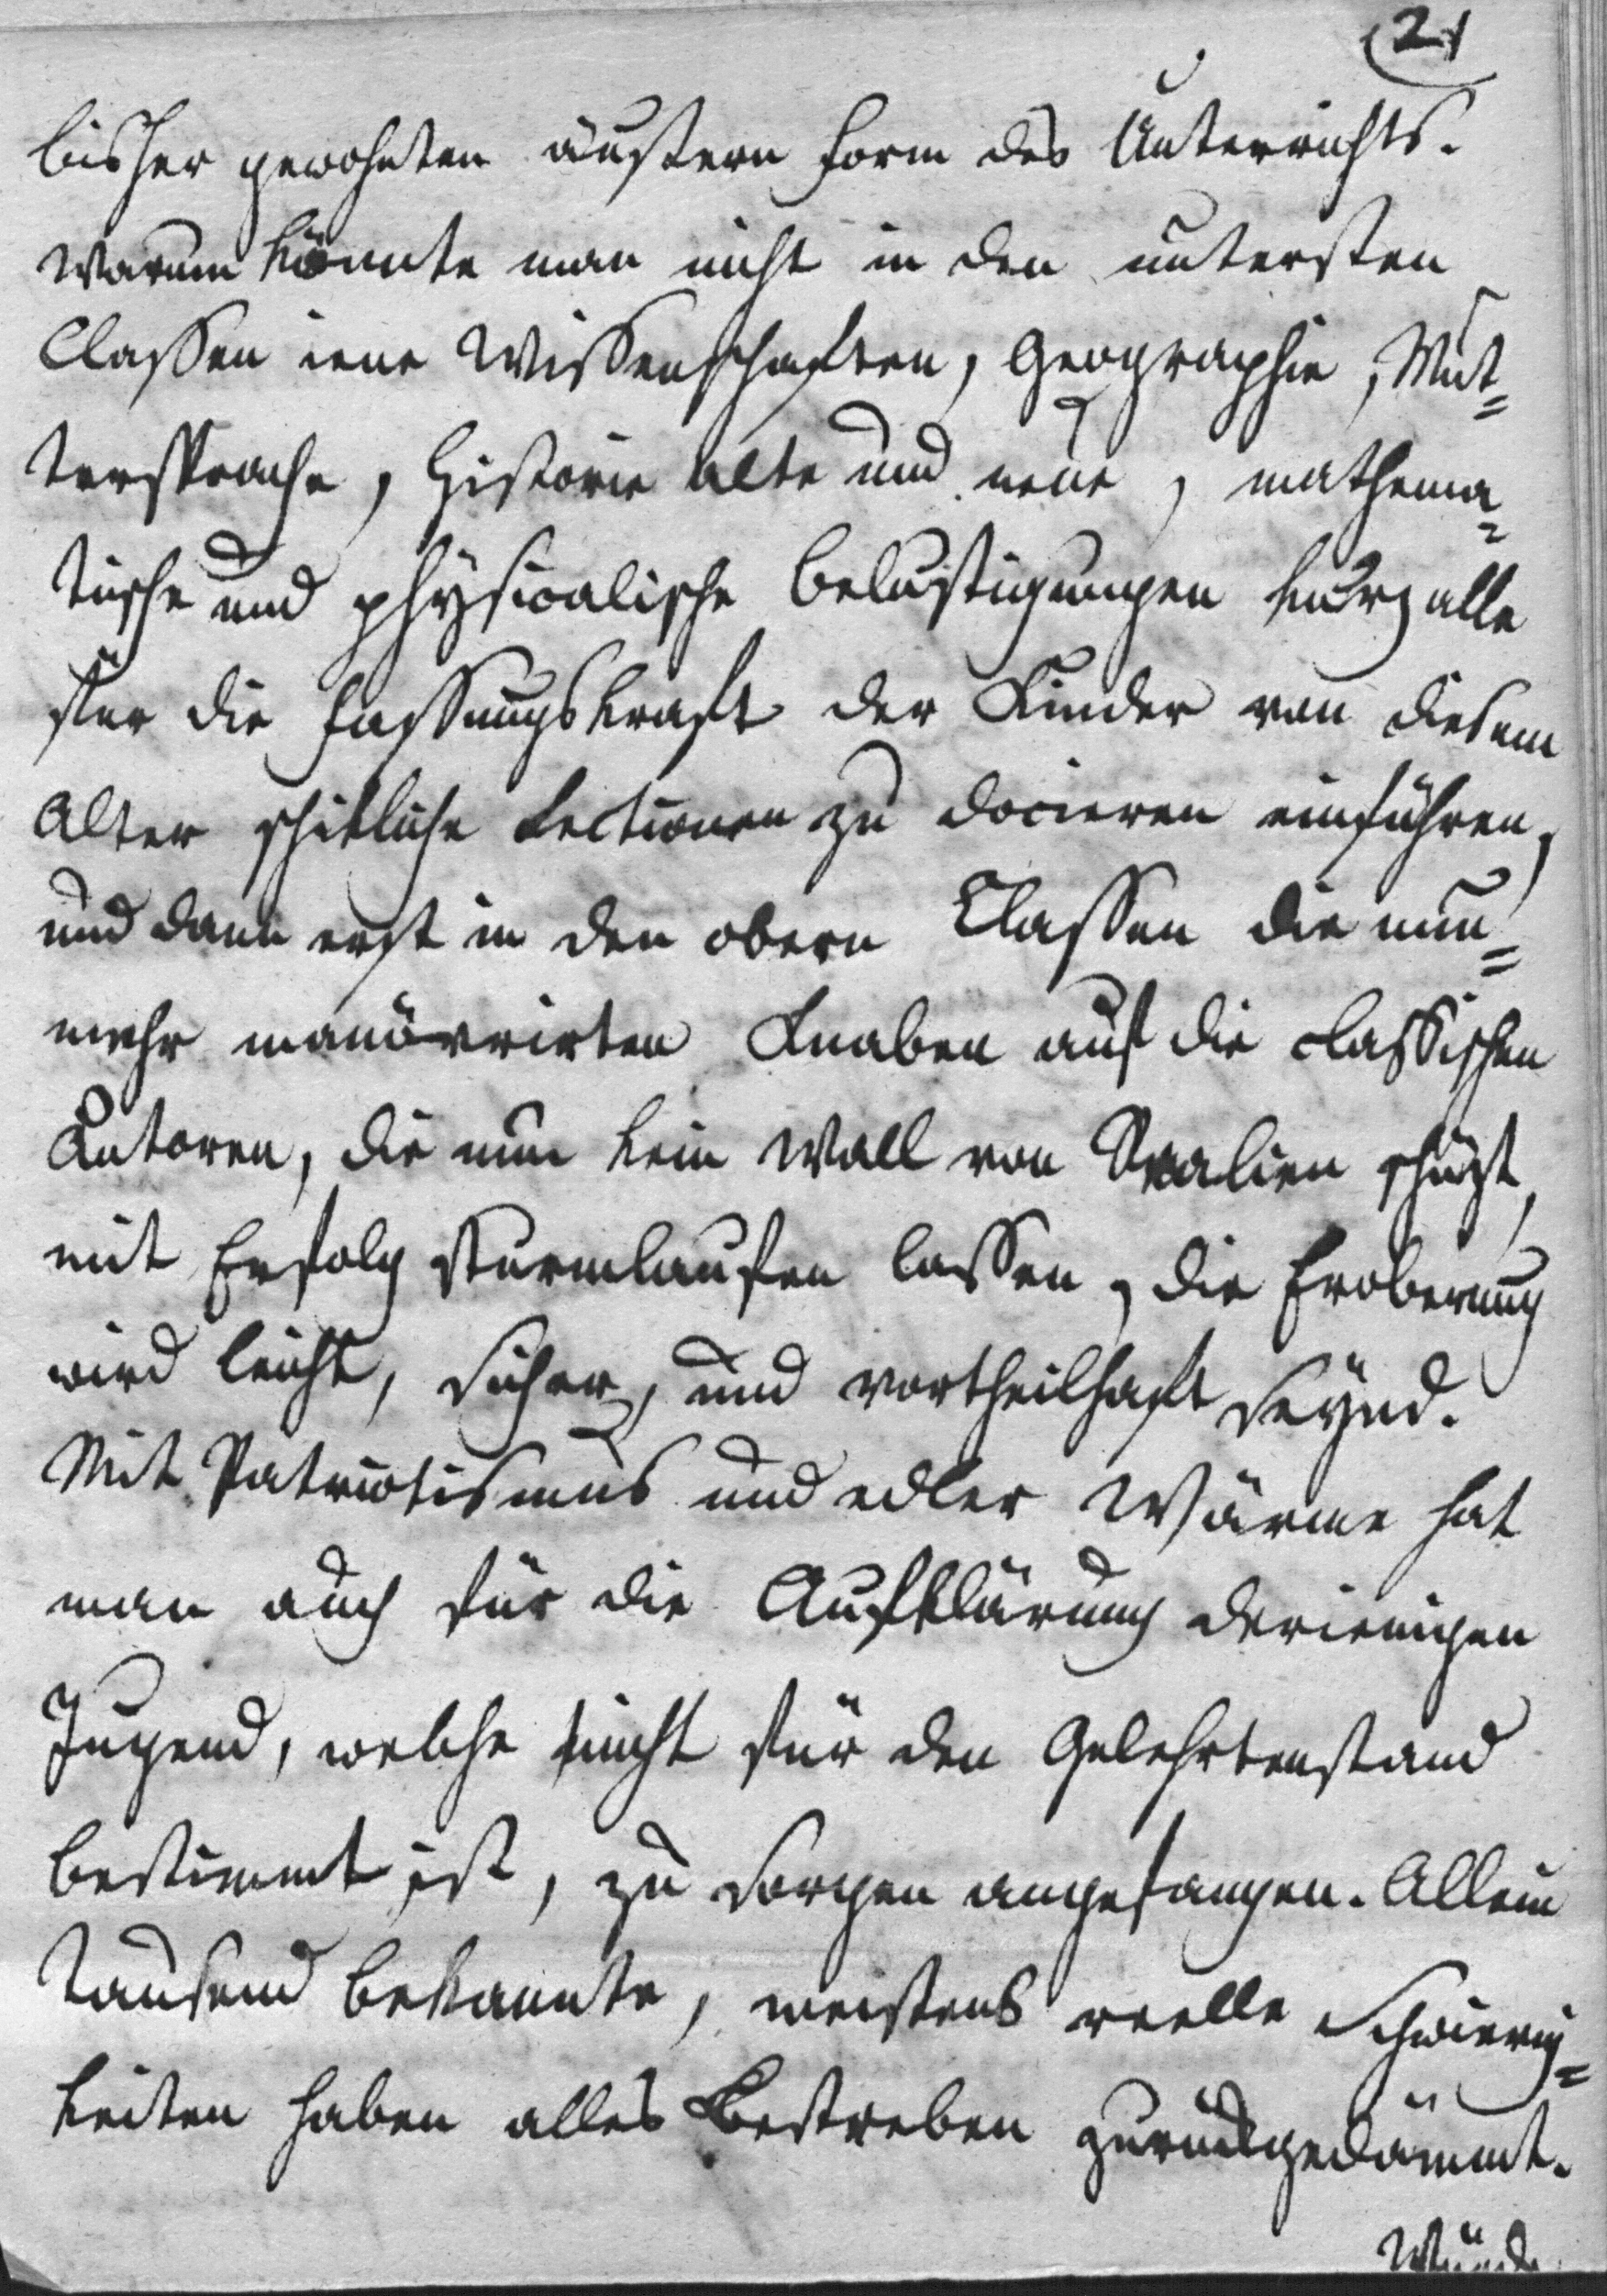 21
bisher gewohnten äußern Form des Unterrichts.
Warum könnte man nicht in den untersten
Classen iene Wissenschaften, Geographie, Mut=
tersprache, Historie alte und neue, mathema=
tische und physicalische Belustigungen kurz alle
für die Fassungskraft der Kinder von diesem
Alter schikliche Lectionen zu docieren einführen,
und dann erst in den obern Classen die nun=
mehr manövrirten Knaben auf die classischen
Autoren, die nun kein Wall von Realien schüzt,
mit Erfolg sturmlaufen lassen, die Eroberung
wird leicht, sicher, und vortheilhaft seynd.
Mit Patriotismus und edler Wärme hat
man auch für die Aufklärung derienigen
Jugend, welche nicht für den Gelehrtenstand
bestimmt ist, zu sorgen angefangen. Allein
tausend bekannte, meistens reelle Schwierig=
keiten haben alles Bestreben zurückgedämmt.